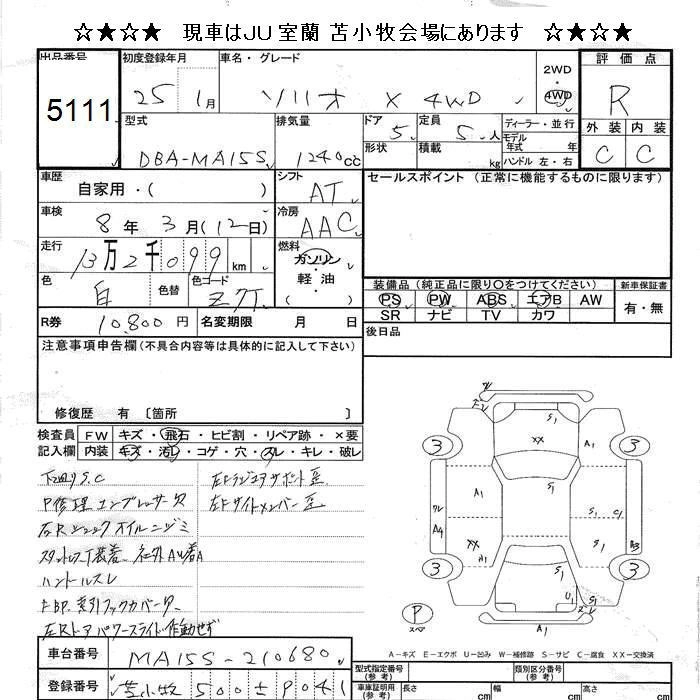 ☆★☆★ 現車はJU室蘭 苫小牧会場にあります ☆★☆★
出品番号 5111
初度登録年月 25 1月
車名・グレード ソリオ X 4WD
2WD 4WD
評価点 R
型式 DBA-MA15S
排気量 1240cc
ドア 5
形状
定員 5人
積載 kg
ディーラー・並行
モデル年式 年
ハンドル 左・右
外装 C
内装 C
車歴 自家用・( )
シフト AT
セールスポイント (正常に機能するものに限ります)
車検 8年3月(12日)
冷房 AAC
走行 13万2千099km
燃料 ガソリン・軽油
色 白
色替
色コード Z7T
装備品 (純正品に限り○をつけてください)
新車保証書
PS PW ABS エアB AW 有・無
SR ナビ TV カワ
R券 10,800円
名変期限 月 日
後日品
注意事項申告欄(不具合内容等は具体的に記入して下さい)
修復歴 有 〔箇所 〕
検査員記入欄
FW キズ・飛石・ヒビ割・リペア跡・×要
内装 キズ・汚レ・コゲ・穴・スレ・キレ・破レ
下廻りS.C
P修理エンプレッサー欠
右Rショックオイルニジミ
スタットレスT装着、社外AW着A
ハンドルスレ
左Rドアパワースライド作動せず
左Fラジエタサポート歪
左Fサイドメンバー歪
3 3 3 3
P スペア
XX S1 A1
A1 S1 S1 C1
A4 A3
XX A1 S1 S1
U1 S1
A1
A-キズ E-エクボ U-凹み W-補修跡 S-サビ C-腐食 XX-交換済
車台番号 MA15S-210680
登録番号 苫小牧 500 9041
型式指定番号(参考)
類別区分番号(参考)
車証明用(参考) 長さ cm 幅 cm 高さ cm